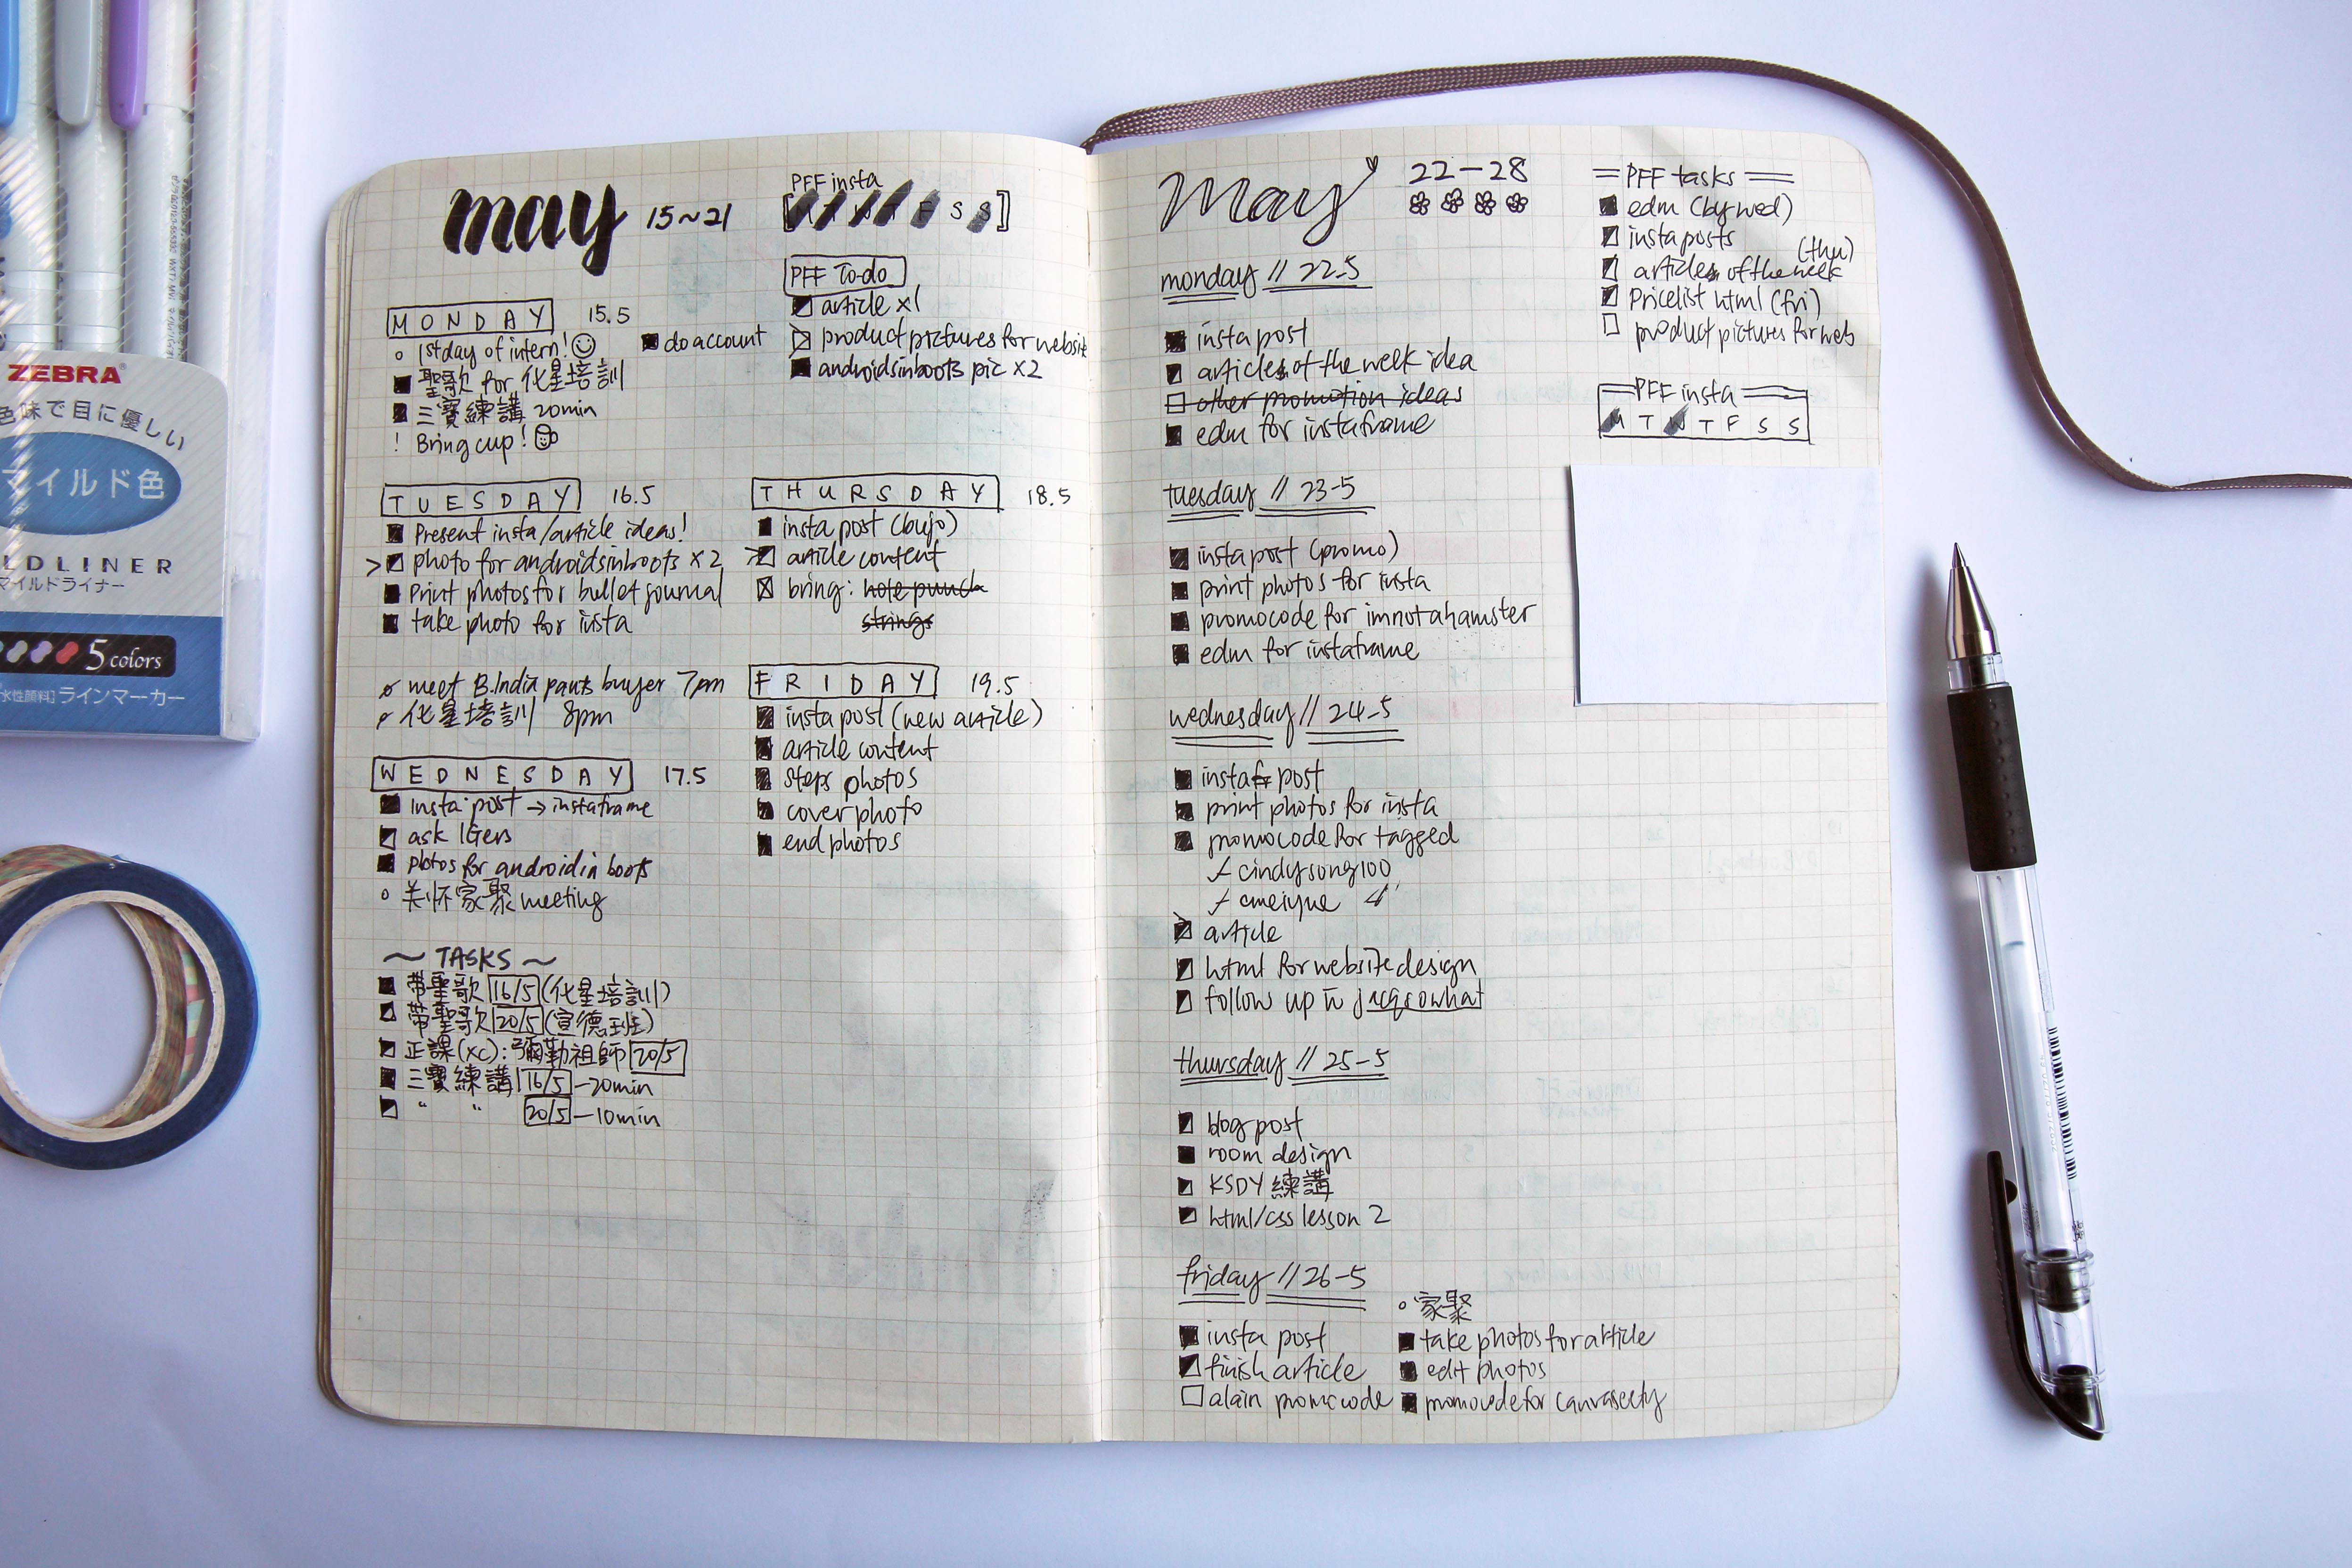 may 15~21
PFF insta
[M T W T F S S]
MONDAY 15.5
1st day of intern!
聖歌 for 化星培訓
三寶練講 20min
! Bring cup!
do account
PFF To-do
article x1
product pictures for website
androidsinboots pic x2
TUESDAY 16.5
Present insta/article ideas!
> photo for androidsinboots x2
Print photos for bullet journal
take photo for insta
meet B.India pants buyer 7pm
化星培訓 8pm
WEDNESDAY 17.5
Insta post → instaframe
ask IGers
photos for androidin boots
关怀家聚 meeting
~ TASKS ~
带聖歌 16/5 (化星培訓)
带聖歌 20/5 (宣德班)
正課(xc): 彌勒祖師 20/5
三寶練講 16/5 - 20min
" " 20/5 - 10min
THURSDAY 18.5
insta post (bujo)
> article content
bring: hole punch
strings
FRIDAY 19.5
insta post (new article)
article content
steps photos
cover photo
end photos
May 22-28
monday // 22.5
insta post
articles of the week idea
other promotion ideas
edm for instaframe
tuesday // 23-5
insta post (promo)
print photos for insta
promocode for imnotahamster
edm for instaframe
wednesday // 24-5
insta post
print photos for insta
promocode for tagged
cindysong100
article
html for website design
follow up
thursday // 25-5
blog post
room design
KSDY 練講
html/css lesson 2
friday // 26-5
insta post
finish article
alain promocode
家聚
take photos for article
edit photos
promocode for
= PFF tasks =
edm (by wed)
insta posts
(thu)
articles of the week
Pricelist html (fri)
product pictures for web
PFF insta
M T W T F S S
ZEBRA
色味で目に優しい
マイルド色
LDLINER
マイルドライナー
5 colors
水性顔料] ラインマーカー